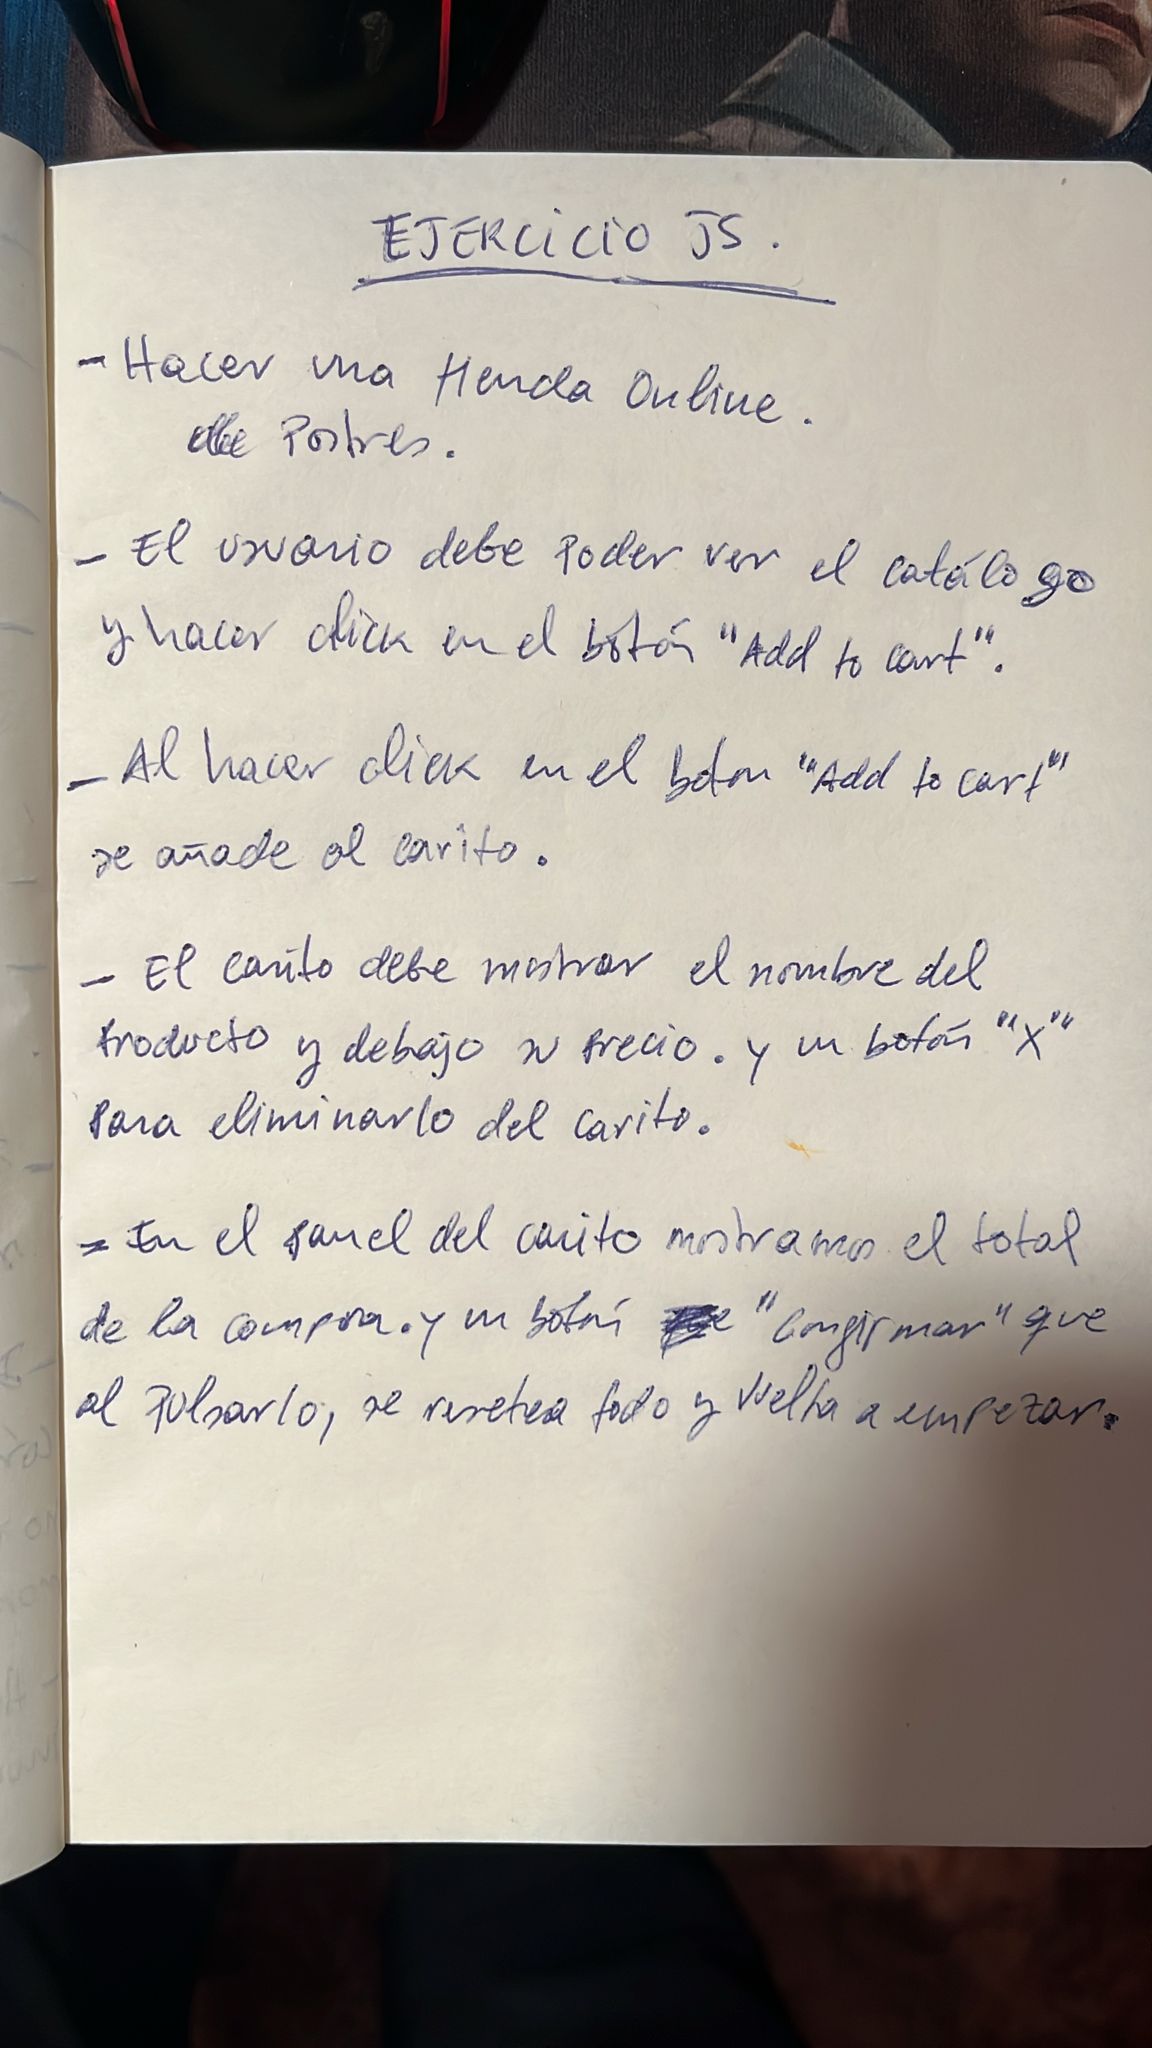 EJERCICIO JS.
- Hacer una tienda Online.
de Postres.
- El usuario debe poder ver el catálogo
y hacer click en el botón "Add to cart".
- Al hacer click en el boton "Add to cart"
se añade al carito.
- El carito debe mostrar el nombre del
producto y debajo su precio. y un botón "X"
para eliminarlo del carito.
- En el panel del carito mostramos el total
de la compra. y un botón "Confirmar" que
al pulsarlo, se resetea todo y vuelta a empezar.